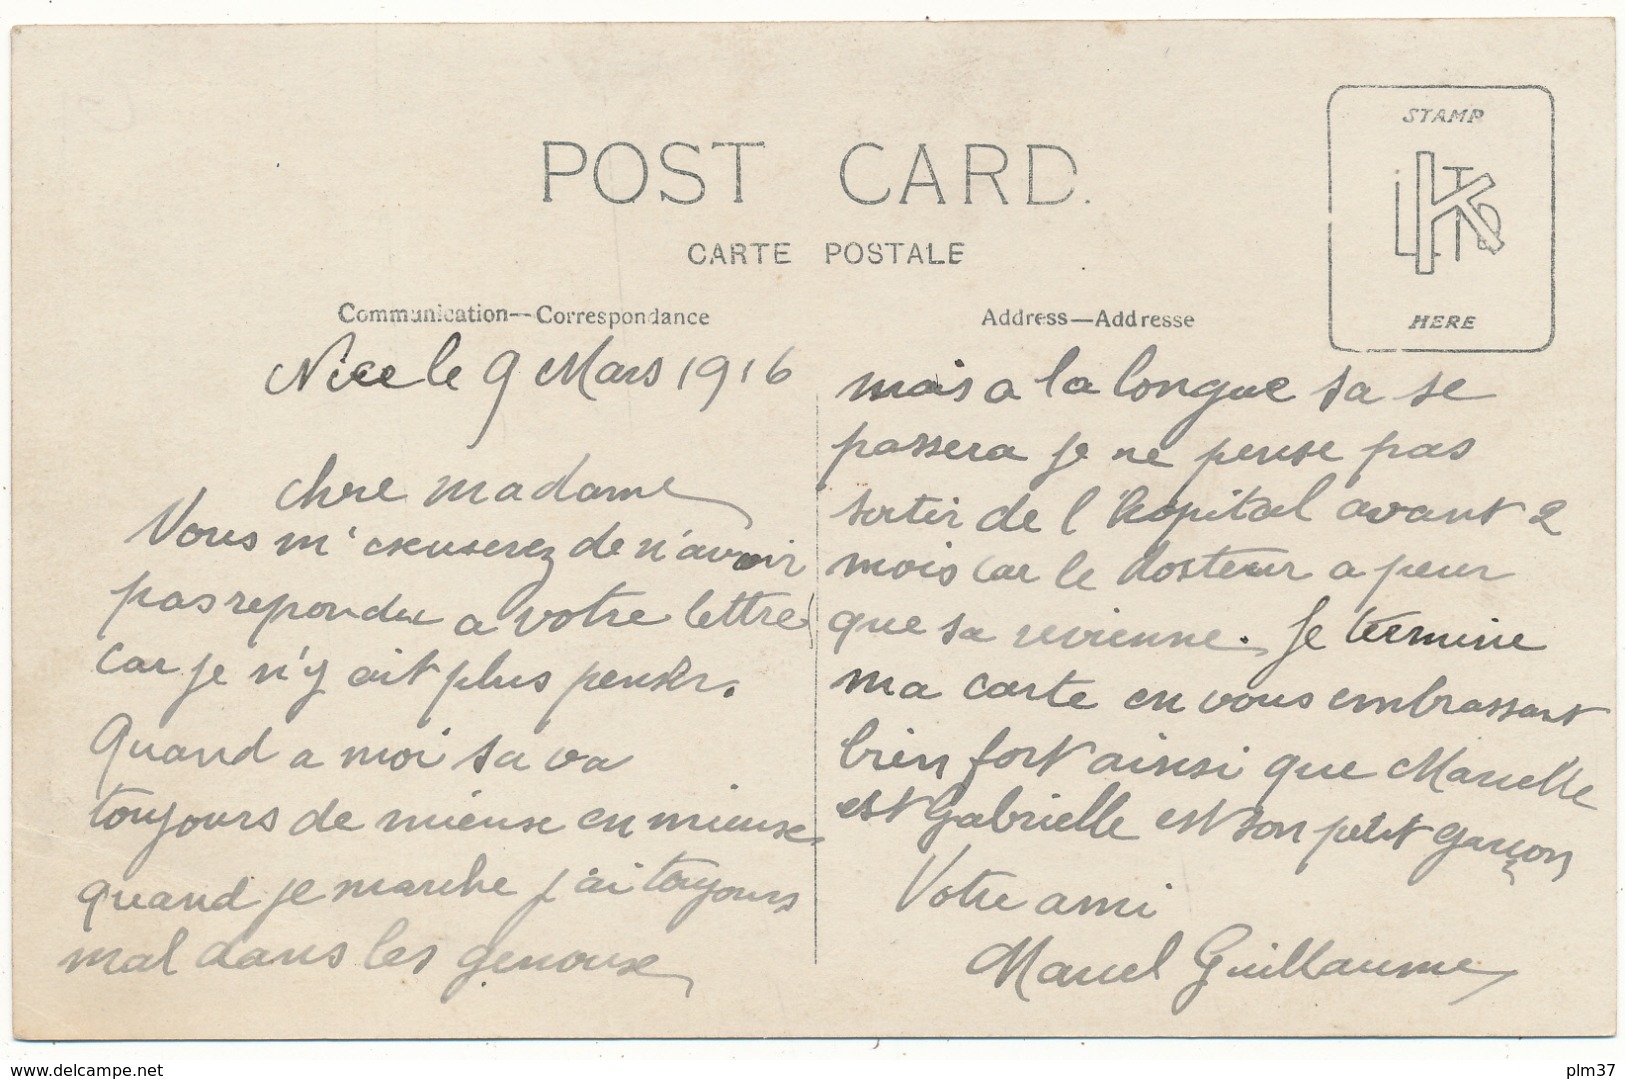 POST CARD.
CARTE POSTALE
STAMP
LITHO
K
HERE
Communication—Correspondance
Nice le 9 Mars 1916
chere madame
Vous m'excuserez de n'avoir
pas repondu a votre lettre
car je n'y ait plus penser.
Quand a moi sa va
toujours de mieuse en mieuse
quand je marche j'ai toujours
mal dans les genouse
Address—Addresse
mais a la longue sa se
passera je ne pense pas
sortir de l'hopital avant 2
mois car le docteur a peur
que sa revienne. Je termine
ma carte en vous embrassant
bien fort ainsi que Marcelle
est Gabrielle est son petit garçon
Votre ami
Marcel Guillaume
www.delcampe.net
plm37